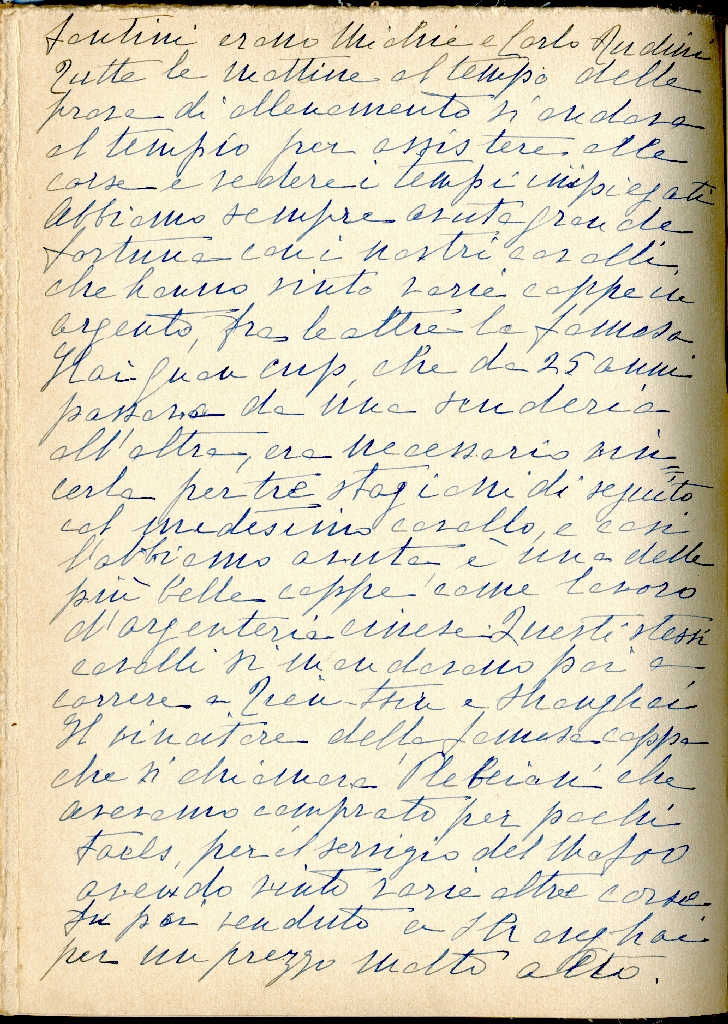 fantini erano Michie e Carlo Rudini
Tutte le mattine al tempo delle
prove di allenamento si andava
al tempio per assistere alle
corse e vedere i tempi impiegati
Abbiamo sempre avuta grande
fortuna con i nostri cavalli
che hanno vinto varie coppe in
argento, fra le altre la famosa
Hai Guan cup, che da 25 anni
passava da una scuderia
all'altra, era necessario vin=
cerla per tre stagioni di seguito
col medesimo cavallo, e così
l'abbiamo avuta è una delle
più belle coppe come lavoro
d'argenteria cinese. Questi stessi
cavalli si mandavano poi a
correre a Tien-Tsin e Shanghai
Il vincitore della famosa coppa
che si chiamava "Plebeian" che
avevamo comprato per pochi
taels, per il servigio del Mafoo
avendo vinto varie altre corse
fu poi venduto a Shanghai
per un prezzo molto alto.